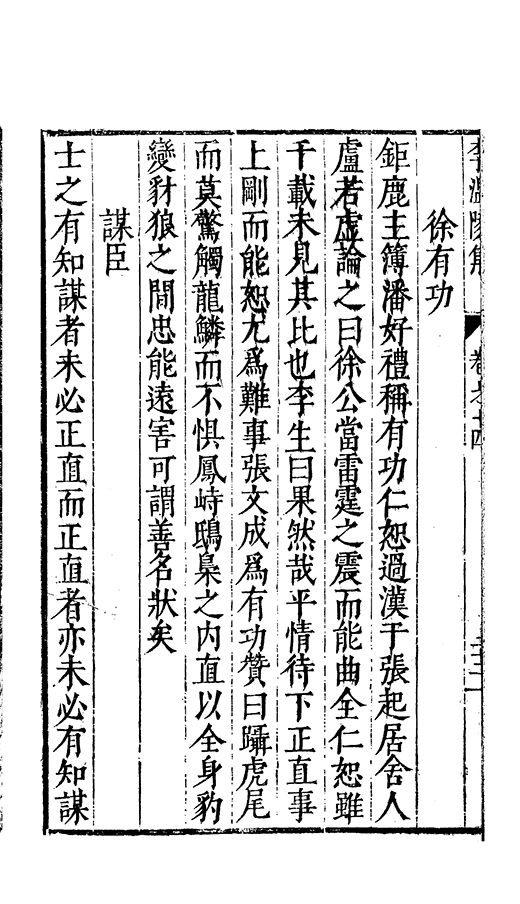 李溫陵集 卷之十四
徐有功
鉅鹿主簿潘好禮稱有功仁恕過漢于張起居舍人
盧若虛論之曰徐公當雷霆之震而能曲全仁恕雖
千載未見其比也李生曰果然哉平情待下正直事
上剛而能恕尤爲難事張文成爲有功贊曰躡虎尾
而莫驚觸龍鱗而不惧鳳峙鴟梟之内直以全身豹
變豺狼之間忠能遠害可謂善名狀矣
謀臣
士之有知謀者未必正直而正直者亦未必有知謀